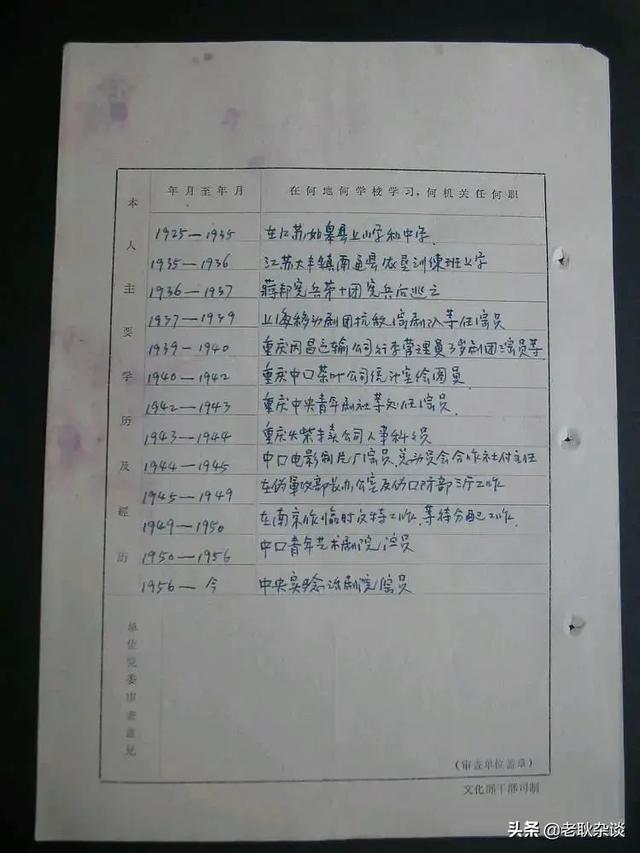 本人主要学历及经历
年月至年月 在何地何学校学习，何机关任何职
1925—1935 在江苏如皋县上小学和中学.
1935—1936 江苏大丰镇南通县农垦训练班上学
1936—1937 蒋邦宪兵第十团宪兵后逃亡
1937—1939 上海移动剧团抗敌演剧队等任演员
1939—1940 重庆 运输公司行李管理员 剧团演员等
1940—1942 重庆中口茶叶公司统计室绘图员
1942—1943 重庆中央青年剧社等处任演员.
1943—1944 重庆火柴专卖公司人事科科员
1944—1945 中口电影制片厂演员.总动员会合作社付主任
1945—1949 在伪军政部长办公室及伪口防部三厅工作
1949—1950 在南京作临时反特工作.等待分配工作.
1950—1956 中口青年艺术剧院演员
1956—今 中央实验话剧院演员
单位党委审查意见
（审查单位盖章）
文化部干部司制
头条 @老耿杂谈